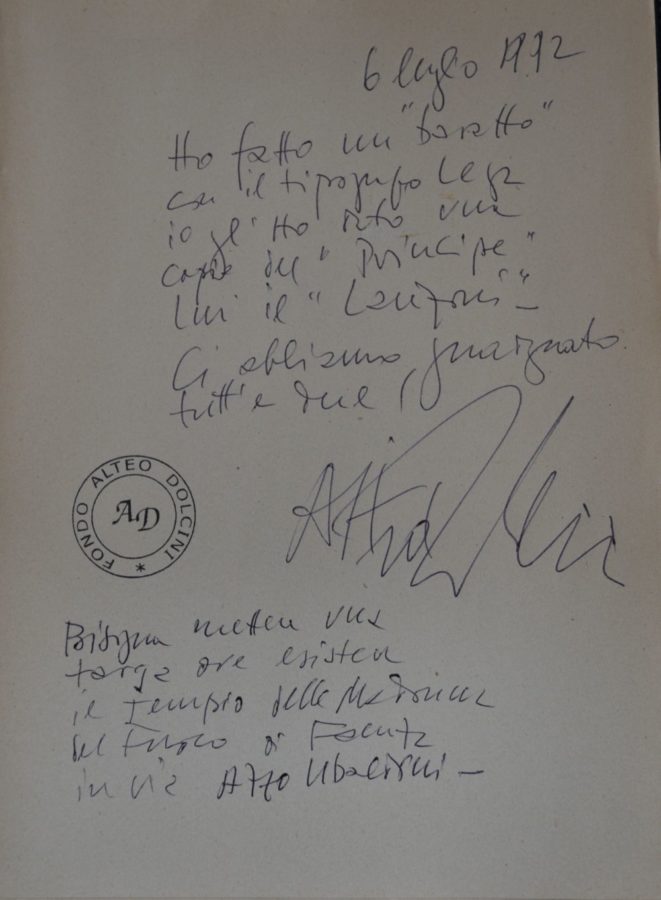 6 luglio 1992
Ho fatto un "baratto"
con il tipografo Lega
io gl' Ho dato una
copia del "Principe"
Lui il "Lanzoni" -
Ci abbiamo guadagnato
tutt'e due
FONDO ALTEO DOLCINI *
AD
Bisogna mettere una
targa ove esisteva
il tempio della Madonna
del Fuoco di Faenza
in via Azzo Ubaldini -